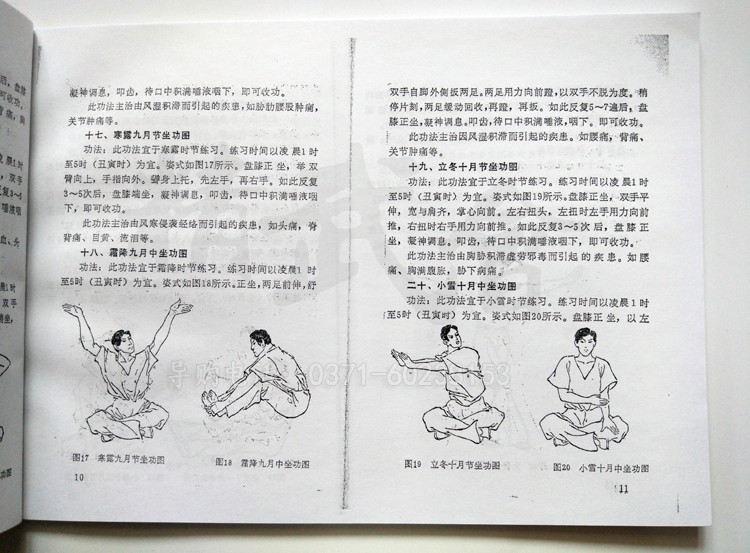 凝神调息，叩齿，待口中积满唾液咽下，即可收功。
此功法主治由风湿积滞而引起的疾患，如胁肋腰股肿痛，
关节肿痛等。
十七、寒露九月节坐功图
功法：此功法宜于寒露时节练习。练习时间以凌晨1时
至5时（丑寅时）为宜。姿式如图17所示。盘膝正坐，举双
臂向上，手指向外。耸身上托，先左手，再右手。如此反复
3～5次后，盘膝端坐，凝神调息，叩齿，待口中积满唾液咽
下，即可收功。
此功法主治由风寒侵袭经络而引起的疾患，如头痛，脊
背痛、目黄、流泪等。
十八、霜降九月中坐功图
功法：此功法宜于霜降时节练习。练习时间以凌晨1时
至5时（丑寅时）为宜。姿式如图18所示。正坐，两足前伸，舒
图17 寒露九月节坐功图
图18 霜降九月中坐功图
10
双手自脚外侧扳两足。两足用力向前蹬，以双手不脱为度。稍
停片刻，两足缓动回收，再蹬，再扳。如此反复5～7遍后，盘
膝正坐，凝神调息。叩齿，待口中积满唾液咽下，即可收功。
此功法主治因风湿积滞而引起的疾患。如腰痛，背痛、
关节肿痛等。
十九、立冬十月节坐功图
功法：此功法宜于立冬时节练习。练习时间以凌晨1时
至5时（丑寅时）为宜。姿式如图19所示。盘膝正坐，双手平
伸，宽与肩齐，掌心向前。左右扭头，左扭时左手用力向前
推，右扭时右手用力向前推。如此反复3～5次后，盘膝正
坐，凝神调息。叩齿，待口中积满唾液咽下，即可收功。
此功法主治由胸胁积滞虚劳邪毒而引起的疾患。如腰
痛、胸满腹胀，胁下病痛。
二十、小雪十月中坐功图
功法：此功法宜于小雪时节练习。练习时间以凌晨1时
至5时（丑寅时）为宜。姿式如图20所示。盘膝正坐，以左
图19 立冬十月节坐功图
图20 小雪十月中坐功图
11